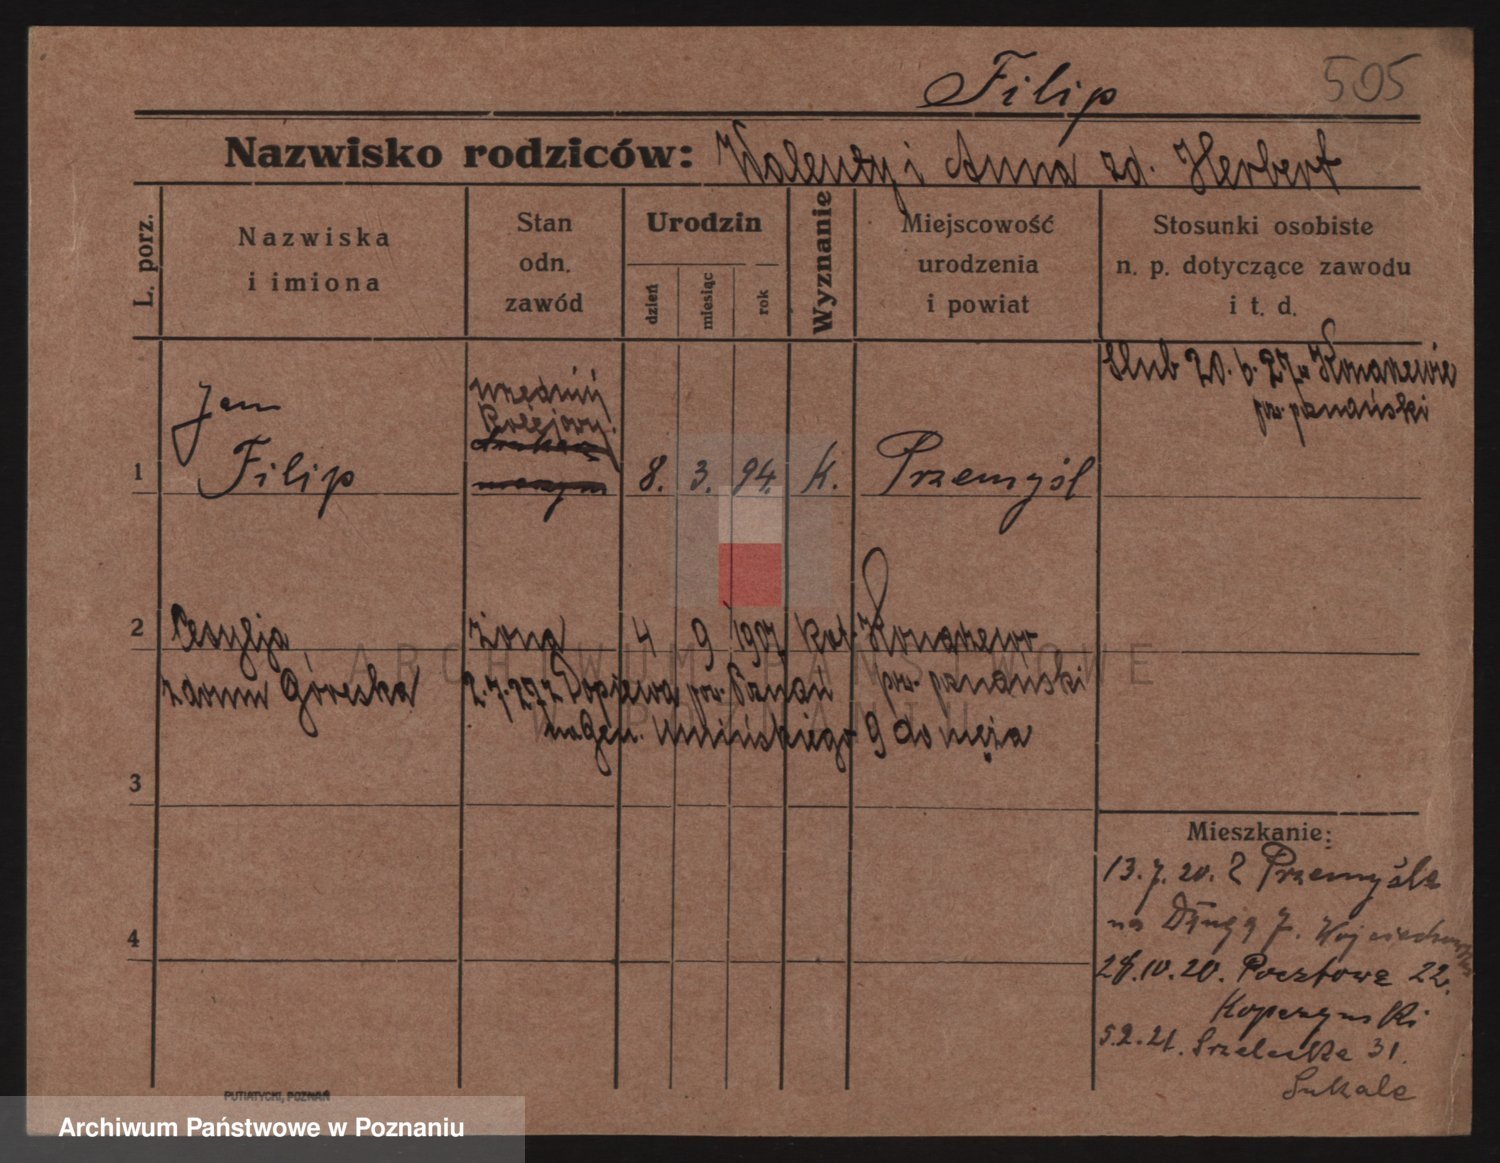 Filip 505
Nazwisko rodziców: Walenty i Anna zd. Herbert
L. porz.
Nazwiska
i imiona
Stan
odn.
zawód
Urodzin
dzień
miesiąc
rok
Wyznanie
Miejscowość
urodzenia
i powiat
Stosunki osobiste
n. p. dotyczące zawodu
i t. d.
Ślub 20. 6. 27 w Konarzewie
pow. poznański
urzędnik
kolejowy
Jan
1 Filip 8. 3. 94. k. Przemyśl
2 Cesylja żona 4 9 1907 kat. Konarzewo
z domu Górecka 2.7.27 z Dopiewa pow. Poznań pow. poznański
na Gen. Umińskiego 9 do męża
3
Mieszkanie:
13.7.20. Z Przemyśla
na Długą 7. Wojciechowska
4
28.10.20. Pocztowa 22.
Kopczynski
5.2.21. Strzelecka 31.
Sukale
PUTIATYCKI, POZNAŃ
ARCHIWUM PAŃSTWOWE
W POZNANIU
Archiwum Państwowe w Poznaniu